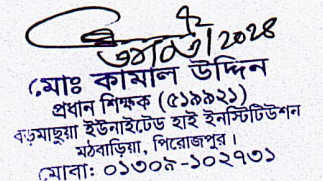 মোঃ কামাল উদ্দিন
প্রধান শিক্ষক (৫১৯৯২১)
বড়মাছুয়া ইউনাইটেড হাই ইনস্টিটিউশন
মঠবাড়িয়া, পিরোজপুর।
মোবা: ০১৩০৯-১০২৭৩১